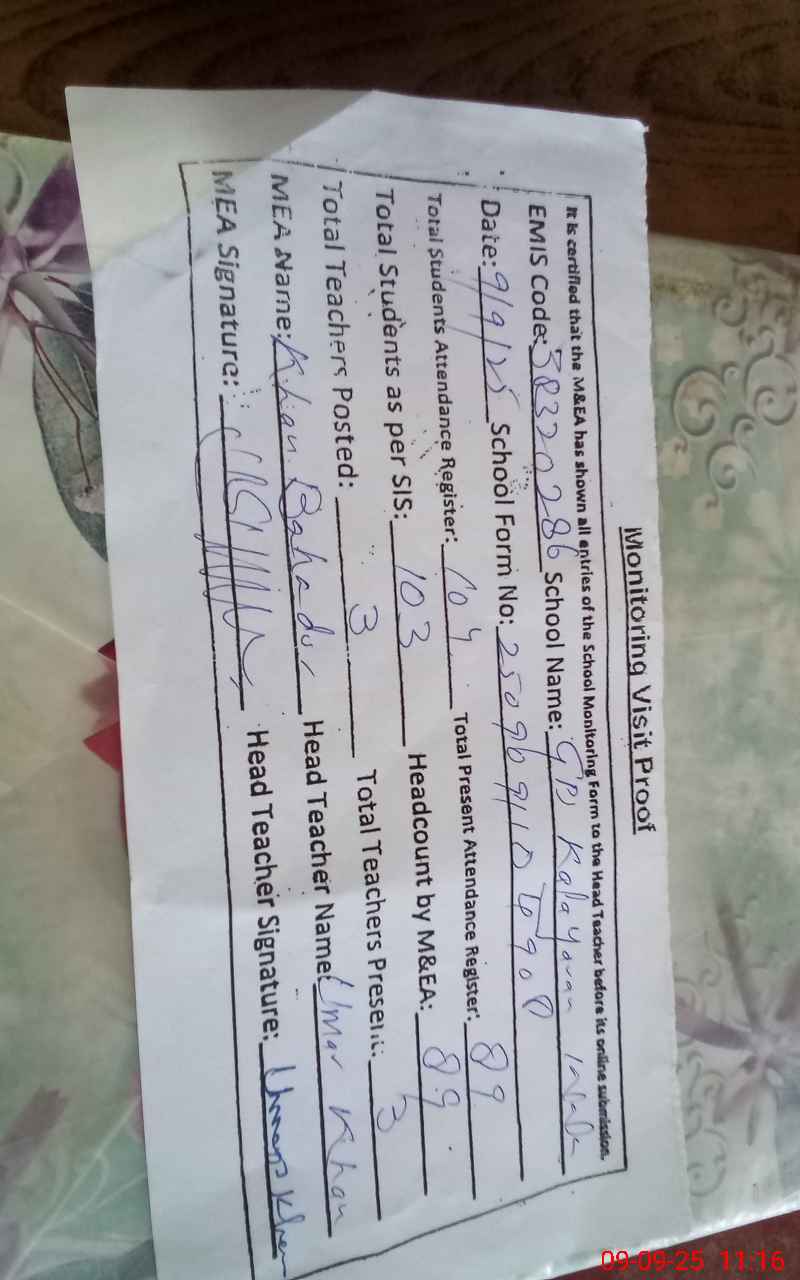 Monitoring Visit Proof
It is certified that the M&EA has shown all entries of the School Monitoring Form to the Head Teacher before its online submission.
EMIS Code: 38320286 School Name: GPS Kala
Date: 9/9/25 School Form No:
Total Students Attendance Register: 104 Total Present Attendance Register: 89
Total Students as per SIS: 103 Headcount by M&EA: 89
Total Teachers Posted: 3 Total Teachers Present: 3
MEA Name: Khan Bahadur Head Teacher Name: Umar Khan
MEA Signature: Head Teacher Signature: Umar Khan
09-09-25 11:16